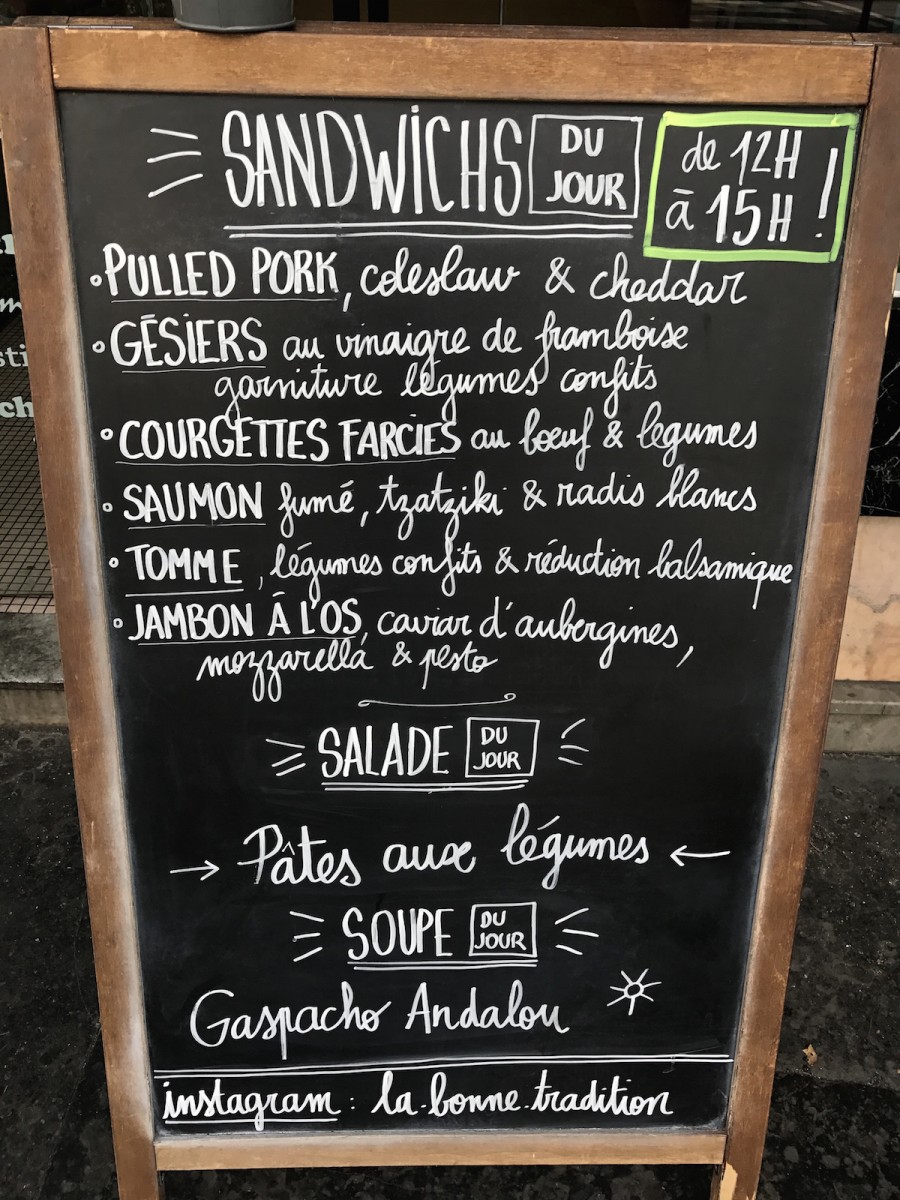 SANDWICHS DU JOUR
de 12H à 15H !
PULLED PORK, coleslaw & cheddar
GÉSIERS au vinaigre de framboise
garniture légumes confits
COURGETTES FARCIES au bœuf & legumes
SAUMON fumé, tzatziki & radis blancs
TOMME, légumes confits & réduction balsamique
JAMBON À L'OS, caviar d'aubergines,
mozzarella & pesto
SALADE DU JOUR
Pâtes aux légumes
SOUPE DU JOUR
Gaspacho Andalou
instagram : la.bonne.tradition